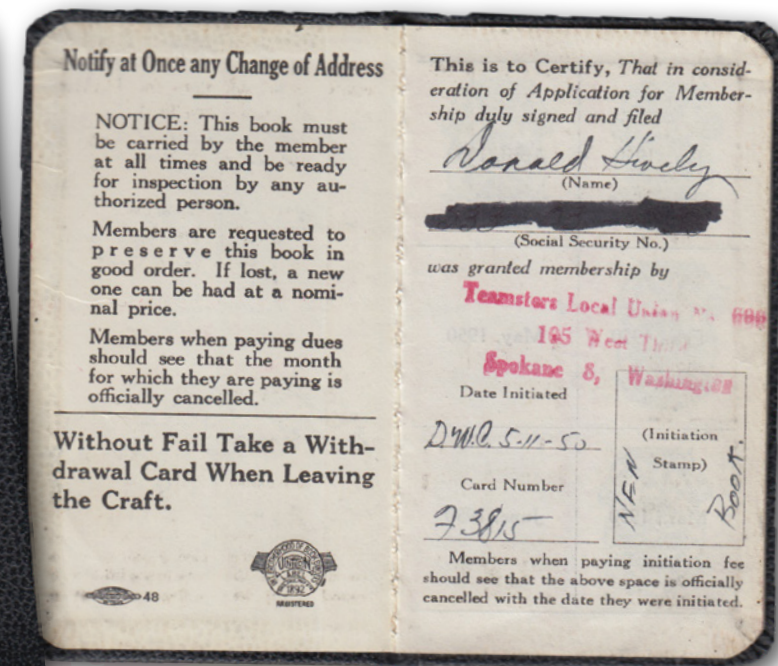 Notify at Once any Change of Address
NOTICE: This book must
be carried by the member
at all times and be ready
for inspection by any au-
thorized person.
Members are requested to
preserve this book in
good order. If lost, a new
one can be had at a nomi-
nal price.
Members when paying dues
should see that the month
for which they are paying is
officially cancelled.
Without Fail Take a With-
drawal Card When Leaving
the Craft.
48
REGISTERED
This is to Certify, That in consid-
eration of Application for Member-
ship duly signed and filed
Donald Hively
(Name)
(Social Security No.)
was granted membership by
Teamsters Local Union No. 690
105 West Third
Spokane 8, Washington
Date Initiated
D.W.C. 5-11-50
(Initiation
Stamp)
NEW
BOOK.
Card Number
73815
Members when paying initiation fee
should see that the above space is officially
cancelled with the date they were initiated.